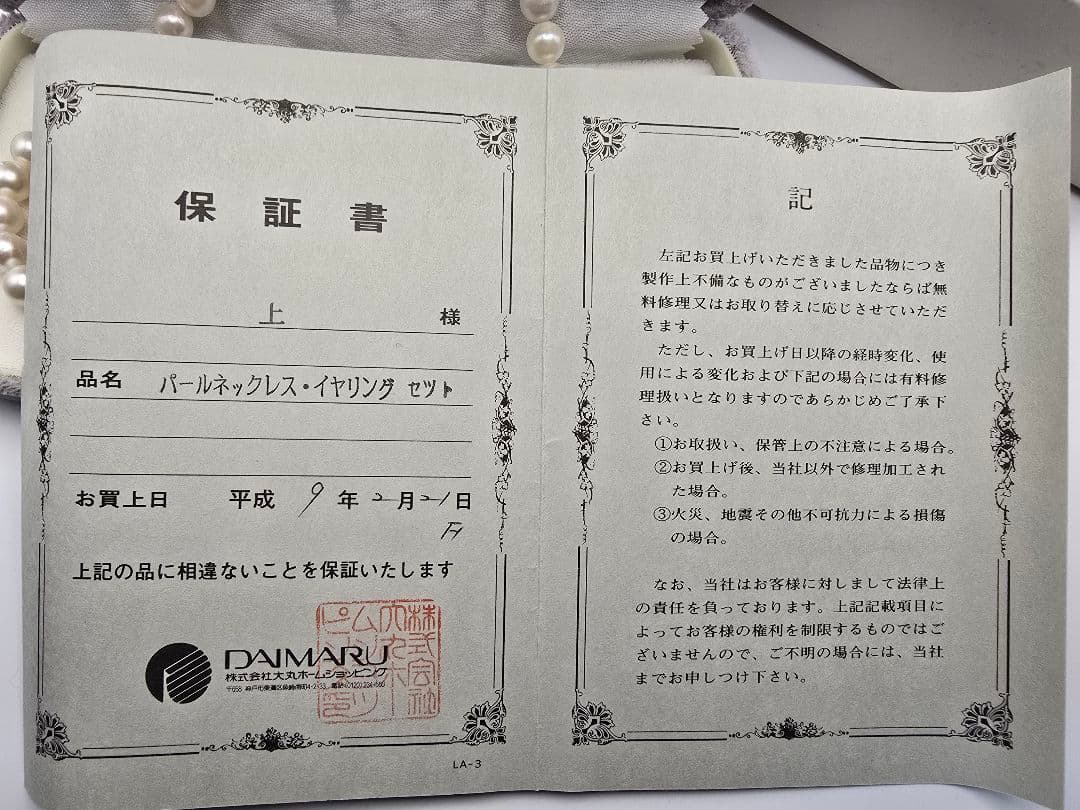 保証書
上 様
品名 パールネックレス・イヤリング セット
お買上日 平成 9年2月21日
上記の品に相違ないことを保証いたします
DAIMARU
株式会社大丸ホームショッピング
LA-3
記
左記お買上げいただきました品物につき
製作上不備なものがございましたならば無
料修理又はお取り替えに応じさせていただ
きます。
ただし、お買上げ日以降の経時変化、使
用による変化および下記の場合には有料修
理扱いとなりますのであらかじめご了承下
さい。
①お取扱い、保管上の不注意による場合。
②お買上げ後、当社以外で修理加工され
た場合。
③火災、地震その他不可抗力による損傷
の場合。
なお、当社はお客様に対しまして法律上
の責任を負っております。上記記載項目に
よってお客様の権利を制限するものではご
ざいませんので、ご不明の場合には、当社
までお申しつけ下さい。